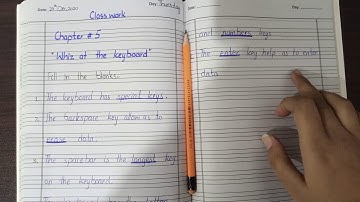 Date: 29th Dec, 2020
Day: Tuesday
Class work
Chapter # 5
"Whiz at the keyboard"
Fill in the blanks.
1. The keyboard has special keys.
2. The backspace key allows us to
erase data.
3. The spacebar is the longest key
on the keyboard.
The keyboard has the letter
Date:
and numbers keys
The enter key help us to enter
data.